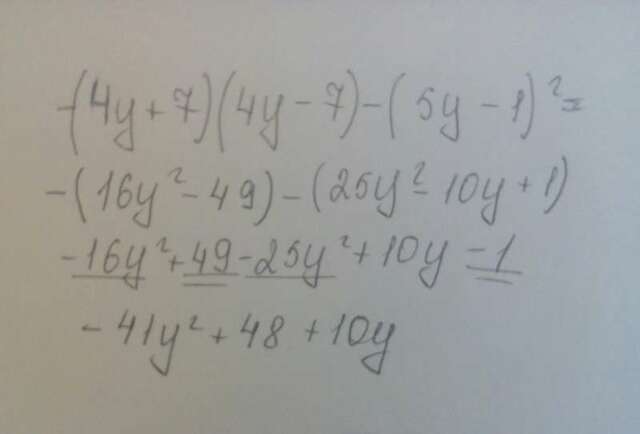 -(4y+7)(4y-7)-(5y-1)²=
-(16y²-49)-(25y²-10y+1)
-16y²+49-25y²+10y-1
-41y²+48+10y